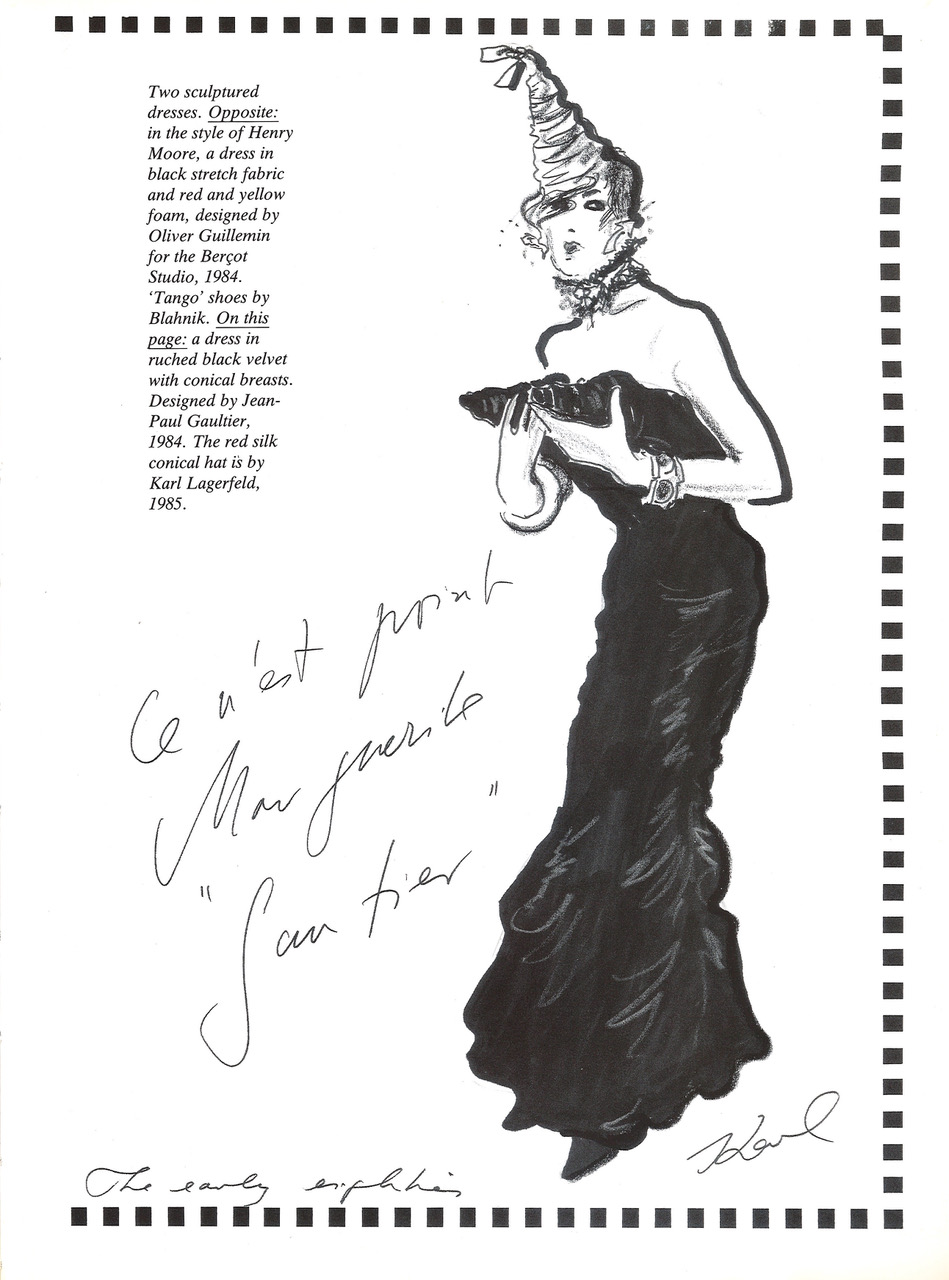 Two sculptured
dresses. Opposite:
in the style of Henry
Moore, a dress in
black stretch fabric
and red and yellow
foam, designed by
Oliver Guillemin
for the Berçot
Studio, 1984.
‘Tango’ shoes by
Blahnik. On this
page: a dress in
ruched black velvet
with conical breasts.
Designed by Jean-
Paul Gaultier,
1984. The red silk
conical hat is by
Karl Lagerfeld,
1985.
Ce n'est point
Marguerite
"Gautier"
Karl
The early eighties